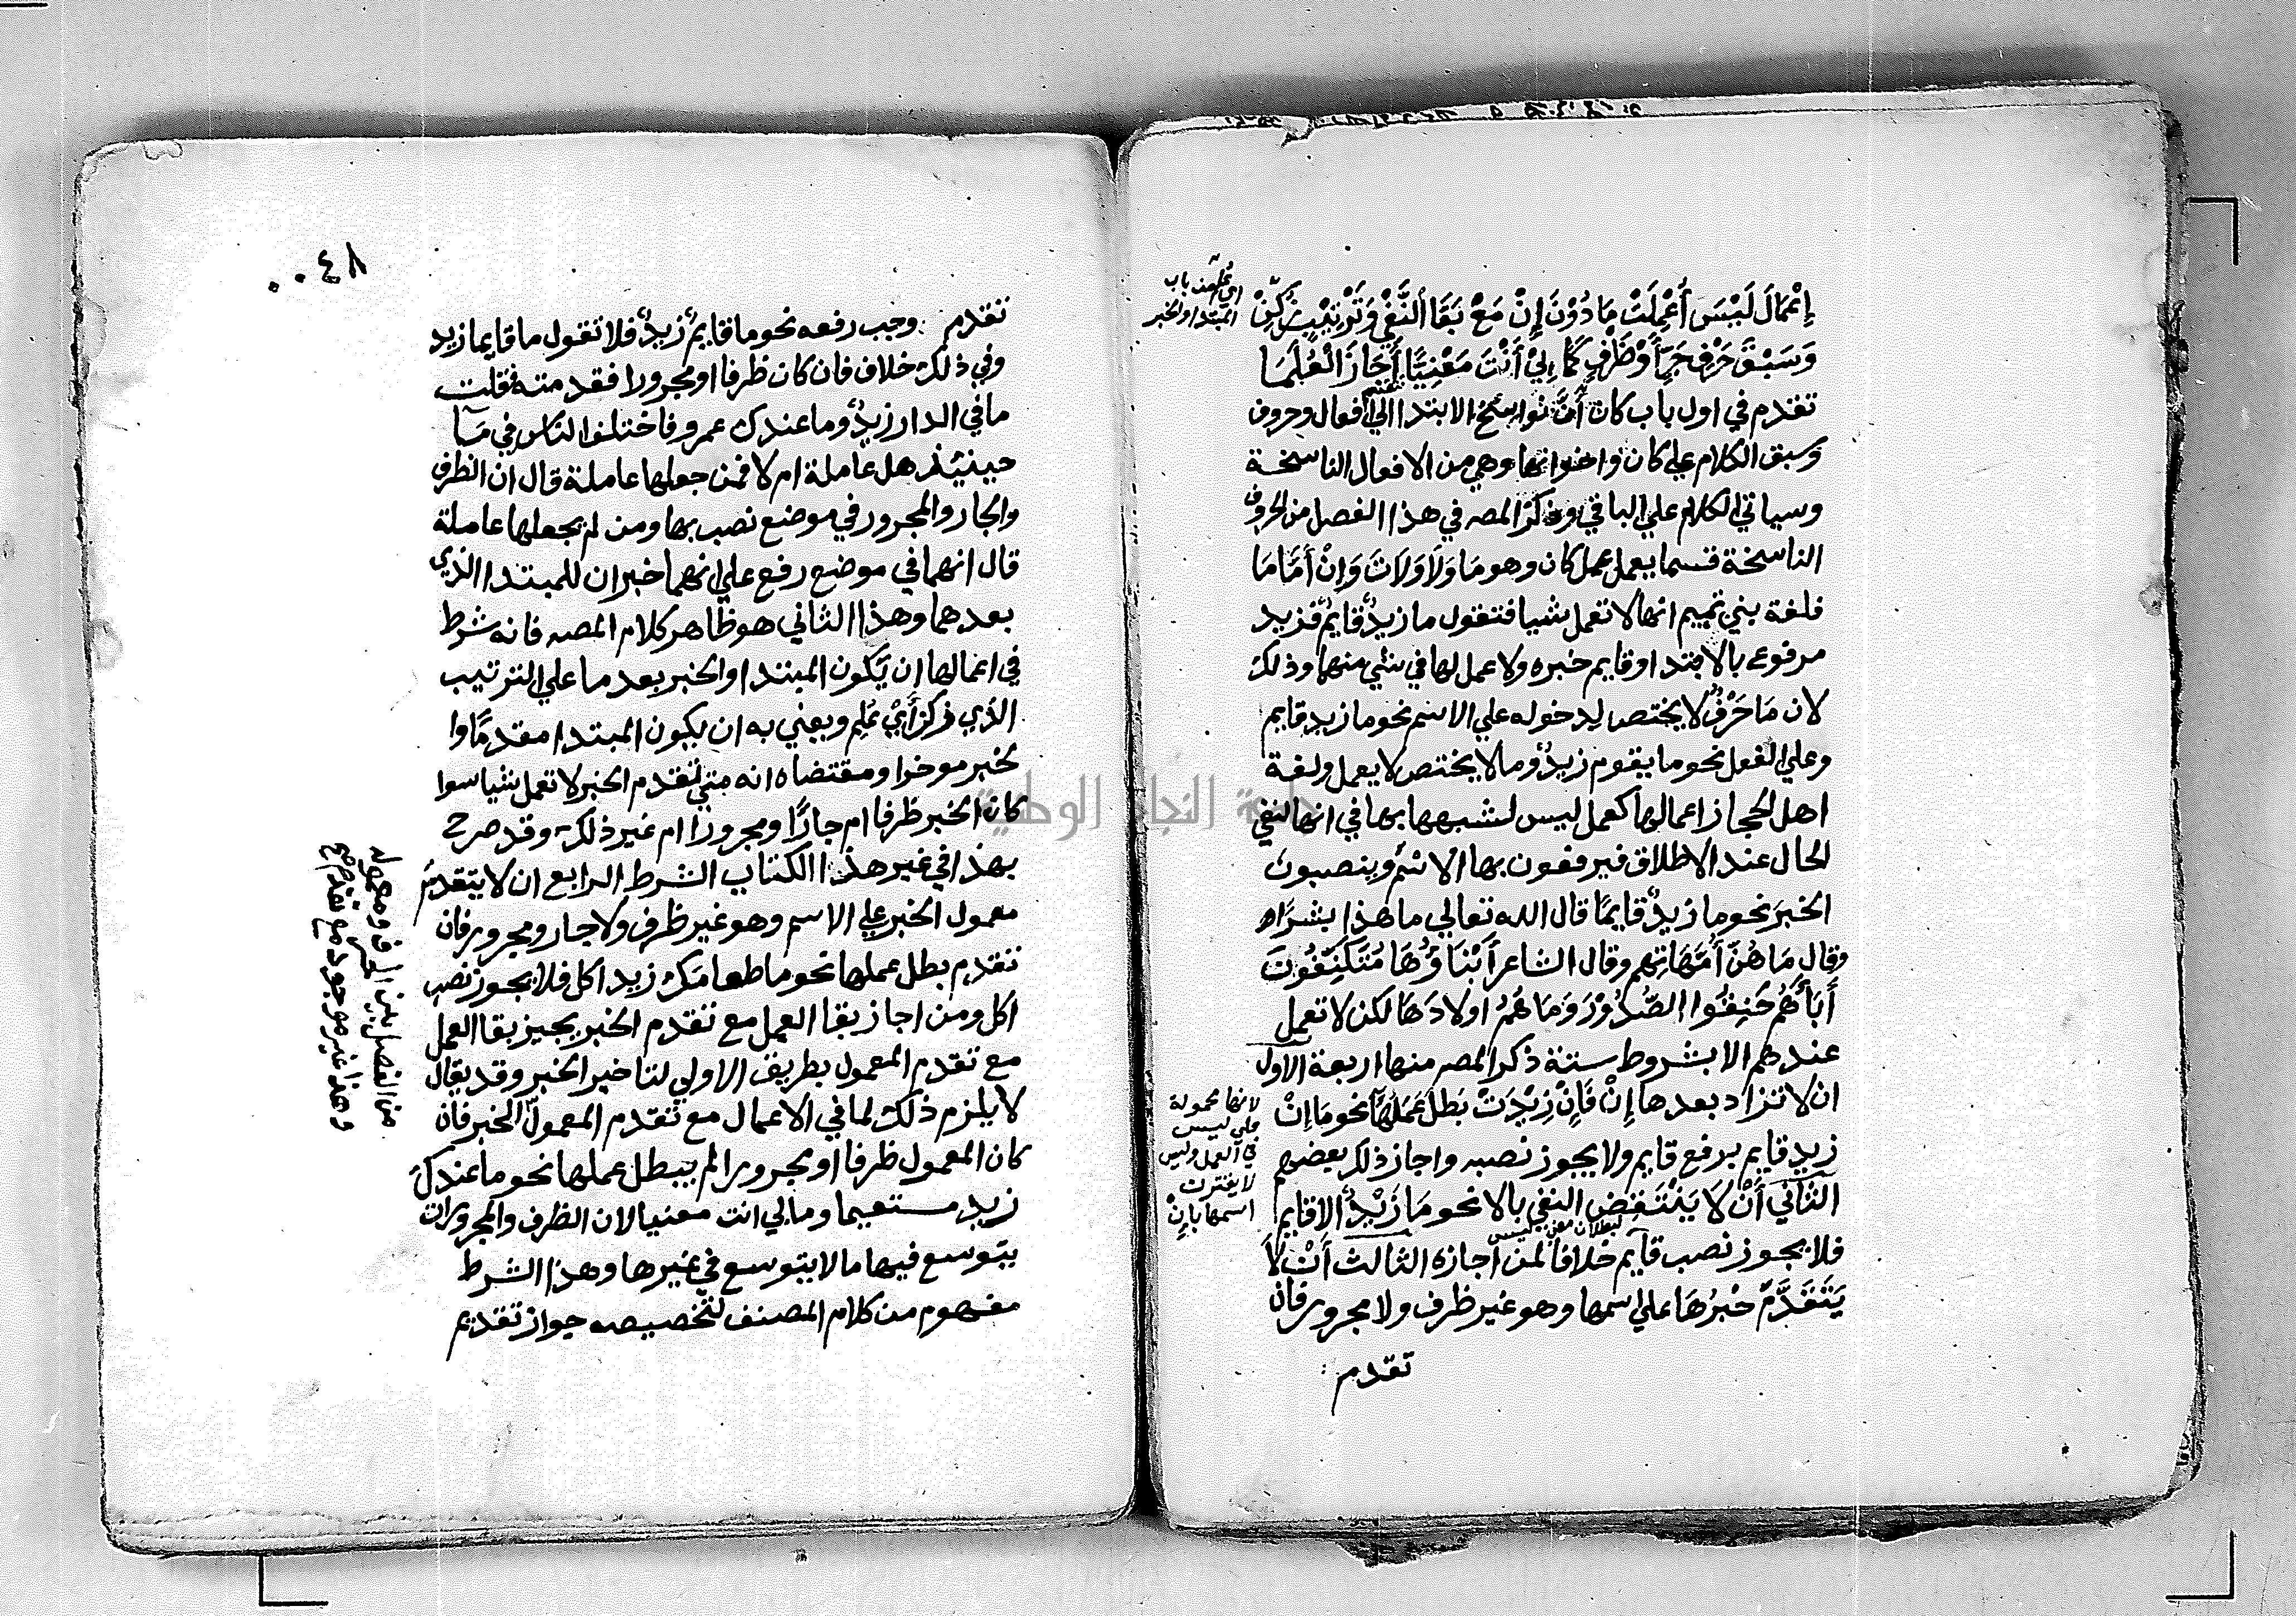 إِعْمَالَ لَيْسَ أُعْمِلَتْ مَا دُوْنَ إِنْ مَعْ بَقَا النَّفْيِ وَتَرْتِيْبٍ زُكِنْ
اي علم من باب
المبتدا والخبر
وَسَبْقَ حَرْفِ جَرٍّ أَوْ ظَرْفٍ كَمَا بِيْ أَنْتَ مَعْنِيًّا أَجَازَ الْعُلَمَا
تقدم في اول باب كان أَنَّ نواسخ الابتدا الي افعال وحروف
وسبق الكلام علي كان واخواتها وهي من الافعال الناسخة
وسياتي الكلام علي الباقي وذكر المصـ في هذا الفصل من الحروف
الناسخة قسما يعمل عمل كان وهو مَا وَلَا وَلَاتَ وَاِنْ أَمَّا مَا
فلغة بني تميم انها لا تعمل شيا فتقول ما زيدٌ قايمٌ فزيد
مرفوع بالابتدا وقايم خبره ولا عمل لها في شئي منهما وذلك
لان مَا حَرْفٌ لا يختص لدخوله علي الاسم نحو ما زيد قايم
وعلي الفعل نحو ما يقوم زيدٌ وما لا يختص لا يعمل ولغة
اهل الحجاز اعمالها كعمل ليس لشبهها بها في انها لنفي
الحال عند الاطلاق فيرفعون بها الاسْم وينصبون
الخبرَ نحو ما زيدٌ قايمًا قال الله تعالي ما هذا بشرًا
وقال مَا هُنَّ أُمَّهَاتِهِم وقال الشاعر أَبْنَاؤُهَا مُتَكَنِّفُونَ
أَبَاهُم حَنِقُوا الصُّدُوْرِ وَمَا هُمُ اولادَهَا لكن لا تعمل
عندهم الا بشروط ستة ذكر المصـ منها اربعة الاول
ان لا تزاد بعدها إِنْ فَإِنْ زِيْدَتْ بَطَلَ عَمَلُهَا نحو مَا إِنْ
زيد قايم برفع قايم ولا يجوز نصبه واجاز ذلك بعضهم
لانها محمولة
علي ليس
في العمل وليس
لا يقترن
اسمها بإِنْ
الثَّاني أَنْ لَا يَنْتَقِضَ النفي بالا نحو مَا زَيْدٌ الا قايم
لبطلان معني ليس
فلا يجوز نصب قايم خلافاً لمن اجازه الثالث أَنْ لَا
يَتَقَدَّمَ خَبَرُهَا علي اسمها وهو غير ظرف ولا مجرور فان
تقدم
٠٠٤٨
تقدم وجب رفعه نحو ما قايمٌ زيدٌ فلا تقول ما قايما زيد
وفي ذلك خلاف فان كان ظرفا او مجرورا فقدمته فقلت
ما في الدار زيدٌ وما عندك عمرو فاختلف الناس في مَا
حينئذ هل عاملة ام لا فمن جعلها عاملة قال ان الظرف
والجار والمجرور في موضع نصب بها ومن لم يجعلها عاملة
قال انهما في موضع رفع علي انهما خبران للمبتدا الذي
بعدهما وهذا الثاني هو ظاهر كلام المصـ فانه شرط
في اعمالها ان يَكون المبتدا والخبر بعد ما علي الترتيب
الذي زكن أَيْ عُلِم ويعني به ان يكون المبتدا مقدمًا وا
لخبر موخرا ومقتضاه انه متي تقدم الخبر لا تعمل شيا سوا
كان الخبر ظرفا ام جارًّا ومجرورًا ام غير ذلك وقد صرح
بهذا في غير هذا الكتاب الشرط الرابع ان لا يتقدمُ
معمول الخبر علي الاسم وهو غير ظرف ولا جار ومجرور فان
تقدم بطل عملها نحو ما طعامَك زيد اكل فلا يجوز نصب
اكل ومن اجاز بقا العمل مع تقدم الخبر يجيز بقا العمل
مع تقدم المعمول بطريق الاولي لتاخير الخبر وقد يقال
لا يلزم ذلك لما في الاعمال مع تقدم المعمول الخبر فان
من الفصل بين الحرف ومعموله
وهذا غير موجود مع تقدم
كان المعمول ظرفا او مجرورا لم يبطل عملها نحو ما عندكَ
زيد مستقيما وما بي انت معنيا لان الظرف والمجرورات
يتوسع فيها ما لا يتوسع في غيرها وهذا الشرط
مفهوم من كلام المصنف لتخصيصه جواز تقديم
جامعة النجاح الوطنية